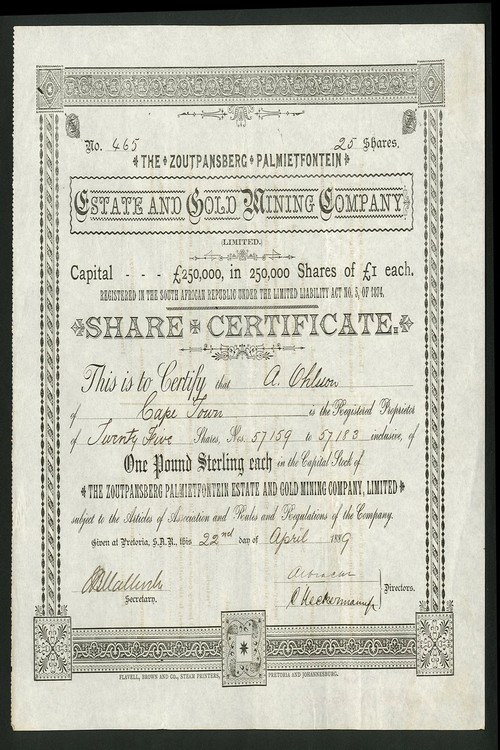 No. 465 25 Shares.
THE ZOUTPANSBERG PALMIETFONTEIN
ESTATE AND GOLD MINING COMPANY
(LIMITED.)
Capital - - - £250,000, in 250,000 Shares of £1 each.
REGISTERED IN THE SOUTH AFRICAN REPUBLIC UNDER THE LIMITED LIABILITY ACT NO. 5, OF 1874.
SHARE CERTIFICATE.
This is to Certify that A. Ohlsson
of Cape Town is the Registered Proprietor
of Twenty Five Shares, Nos. 57159 to 57183 inclusive, of
One Pound Sterling each in the Capital Stock of
THE ZOUTPANSBERG PALMIETFONTEIN ESTATE AND GOLD MINING COMPANY, LIMITED
subject to the Articles of Association and Rules and Regulations of the Company.
Given at Pretoria, S.A.R., this 22nd day of April 1889
Secretary.
Directors.
FLAVELL, BROWN AND CO., STEAM PRINTERS, PRETORIA AND JOHANNESBURG.